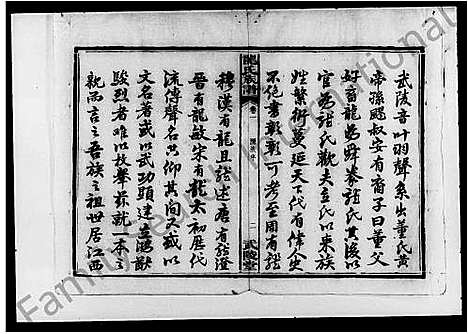 武陵音叶羽聲系出董氏黃
帝孫颺叔安有裔子曰董父
好畜龍為舜豢龍氏其後以
官為龍氏歡夫立氏以來族
姓繁衍蔓延天下代有偉人史
不絕書彰彰可考至周有龍
龍氏族譜
卷一
二
武陵堂
穆漢有龍且龍述唐有龍澄
晉有龍敏宋有龍太初歷代
流傳聲名共仰其間或以
文名著或以武功顯建立鴻猷
駿烈者難以枚舉茲就一本之
親而言之吾族之祖世居江西